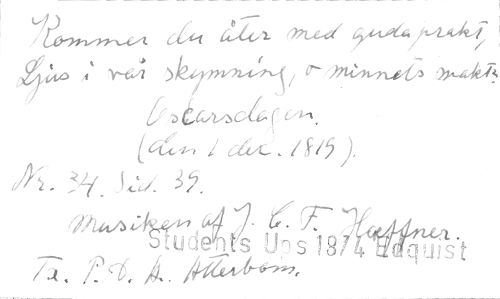 Kommer du åter med gudaprakt,
Ljus i vår skymning, o minnets makt?
Oscarsdagen.
(den 1 dec. 1819).
Nr. 34. Sid. 39.
Musiken af J. C. F. Hæffner.
Students Ups 1874 Edquist
Tx. P. D. A. Atterbom.